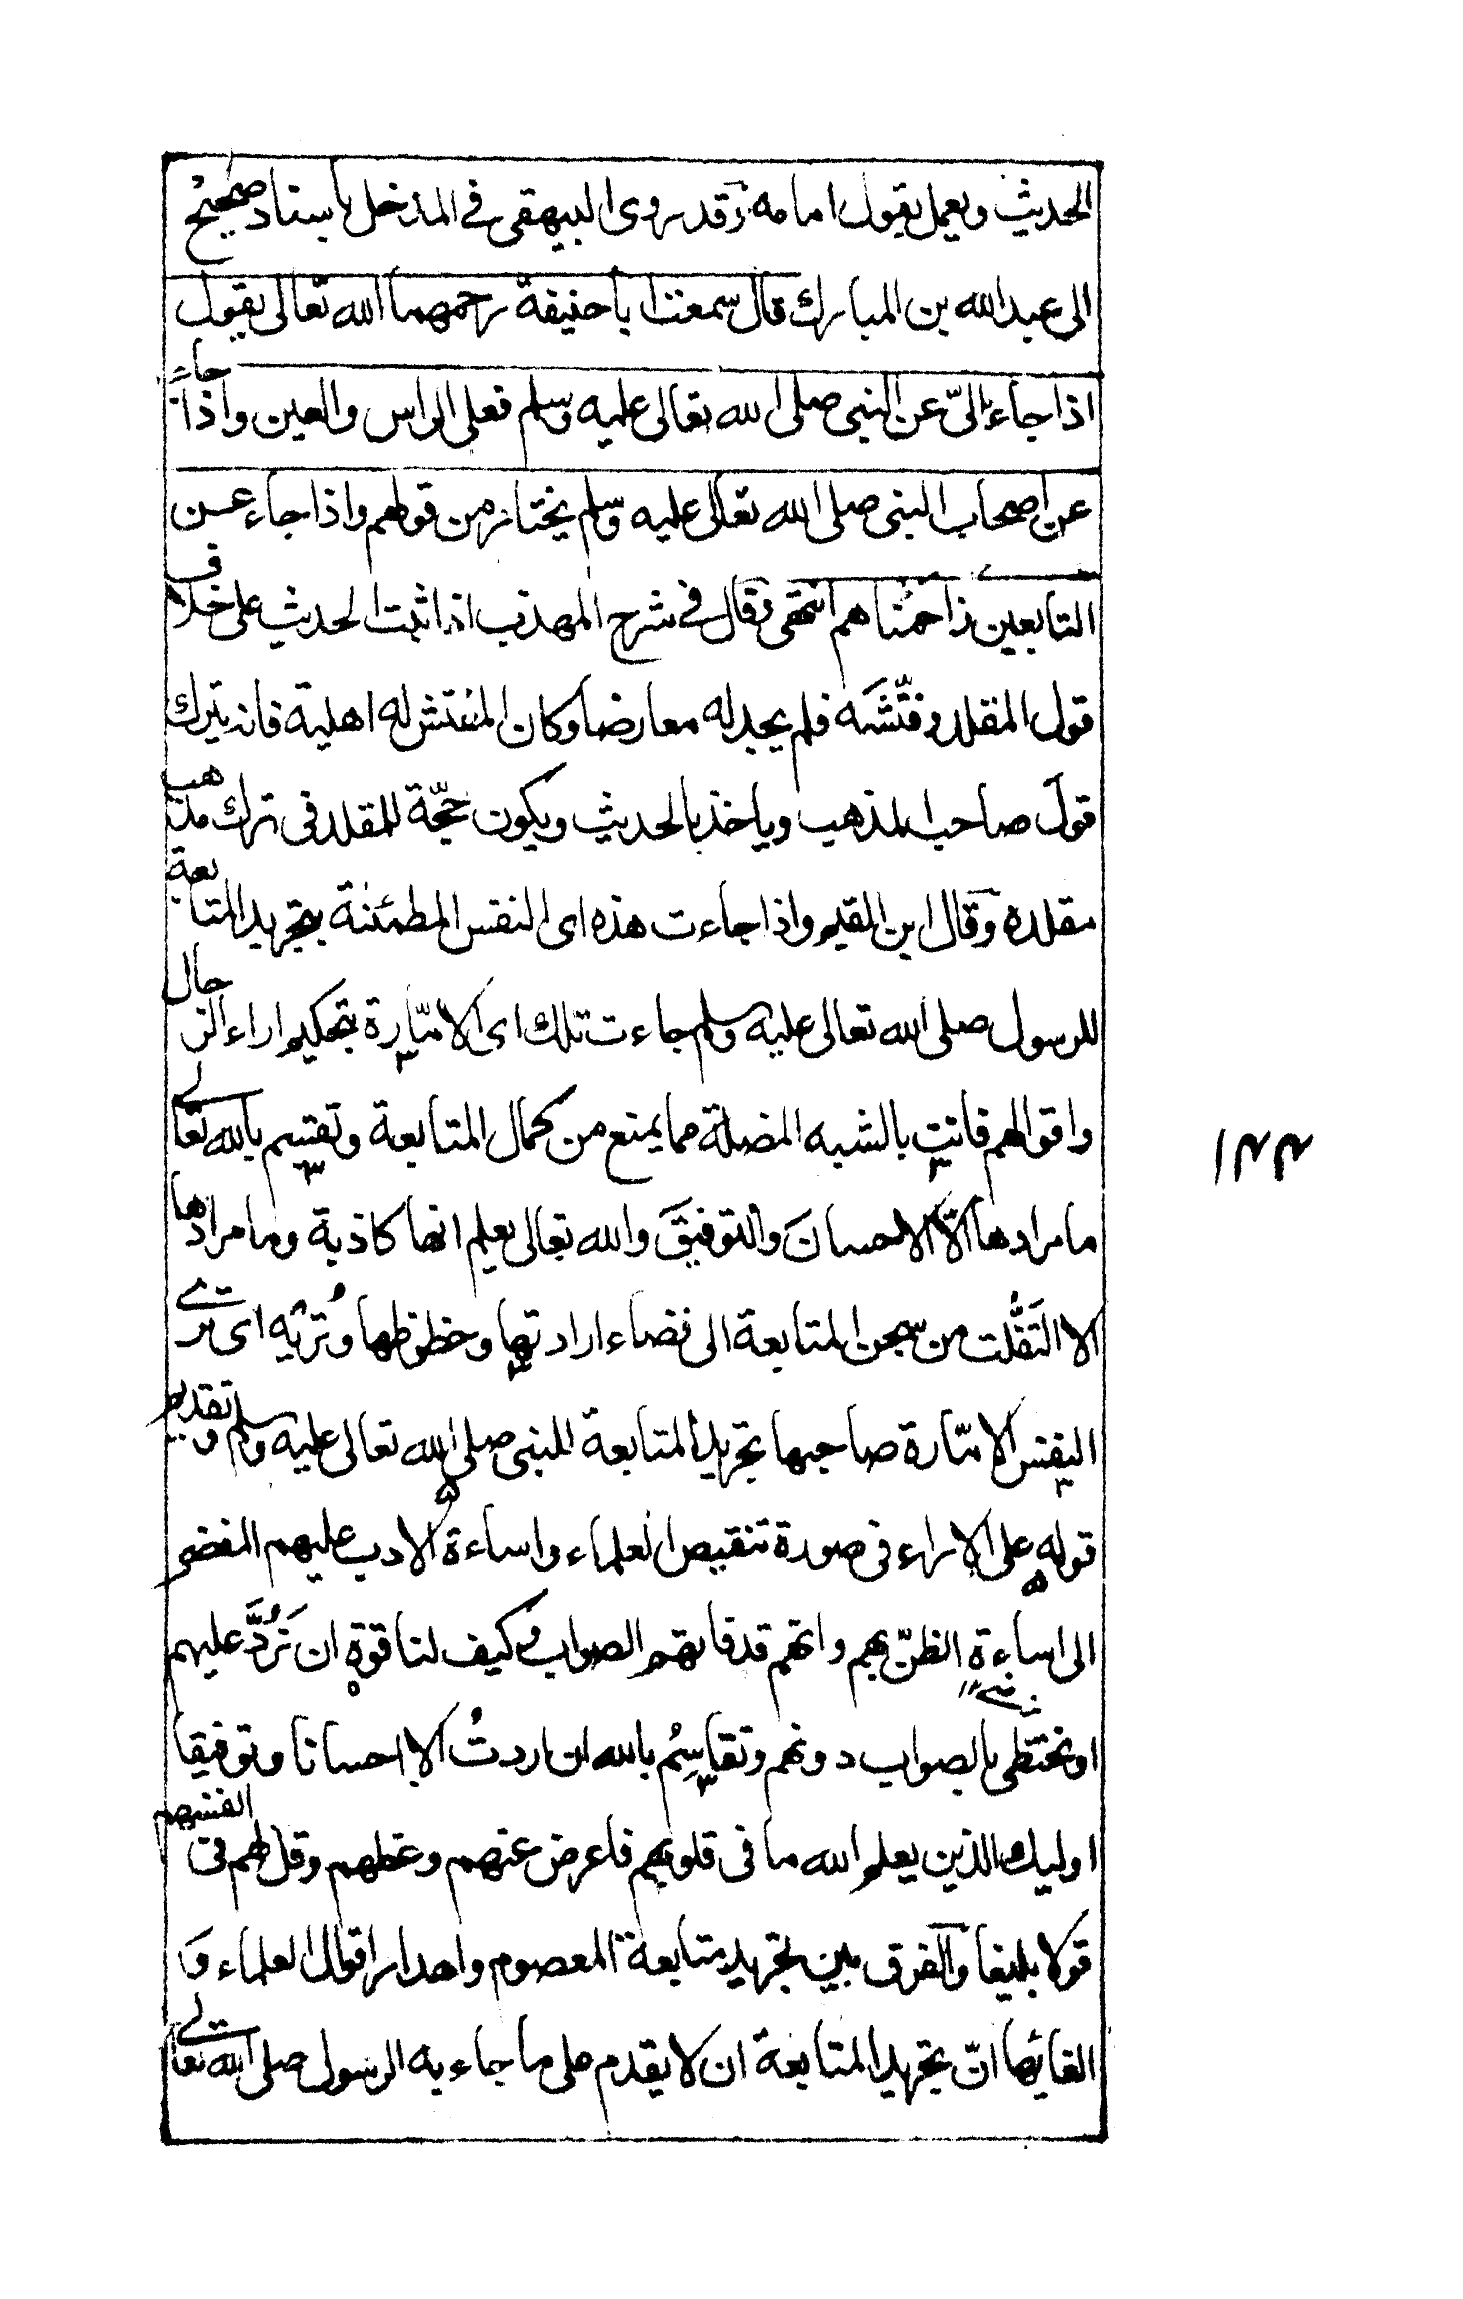 الحديث ويعمل بقول امامه وَقد روى البيهقى فى المدخل باسناد صحيح
الى عبدالله بن المبارك قال سمعت اباحنيفة رحمهما الله تعالى يقول
اذا جاء عن النبى صلى الله تعالى عليه وسلم فعلى الراس والعين واذا جاء
عن اصحاب النبى صلى الله تعالى عليه وسلم نختار من قولهم واذا جاء عن
التابعين زاحمناهم انتهى وَقال فى شرح المهذب اذا ثبت الحديث على خلاف
قول المقلد وفتّشَه فلم يجد له معارضا وكان المفتش له اهلية فانه يترك
قول صاحب المذهب وياخذ بالحديث ويكون حجّة للمقلد فى ترك مذهب
مقلده وَقال ابن القيم واذا جاءت هذه اى النفس المطمئنة بتجريد المتابعة
للرسول صلى الله تعالى عليه وسلم جاءت تلك اى الامّارة بتحكيم اراء الرجال
واقوالهم فاتت بالشبه المضلة مما يمنع من كمال المتابعة وتقسم بالله تعالى
ما مرادها الّا الاحسانَ والتوفيقَ والله تعالى يعلم انها كاذبة وما مرادها
الا التَفَلُّت من سجن المتابعة الى فضاء ارادتها وحظوظها وتُرِيْه اى ترى
النفس الامّارة صاحبها تجريد المتابعة للنبى صلى الله تعالى عليه وسلم وتقديم
قوله على الاراء فى صورة تنقيص العلماء واساءة الادب عليهم المفضى
الى اساءة الظنّ بهم وانهم قد فاتهم الصواب وكيف لنا قوة ان نَرُدَّ عليهم
او نحتظى بالصواب دونهم وتقاسِمُ بالله ان اردتُ الا احسانا وتوفيقا
اوليك الذين يعلم الله ما فى قلوبهم فاعرض عنهم وعظهم وقل لهم فى انفسهم
قولا بليغا وَالفرق بين تجريد متابعة المعصوم واهدار اقوال العلماء وَ
الغائها انّ تجريد المتابعة ان لا يقدم على ما جاء به الرسول صلى الله تعالى